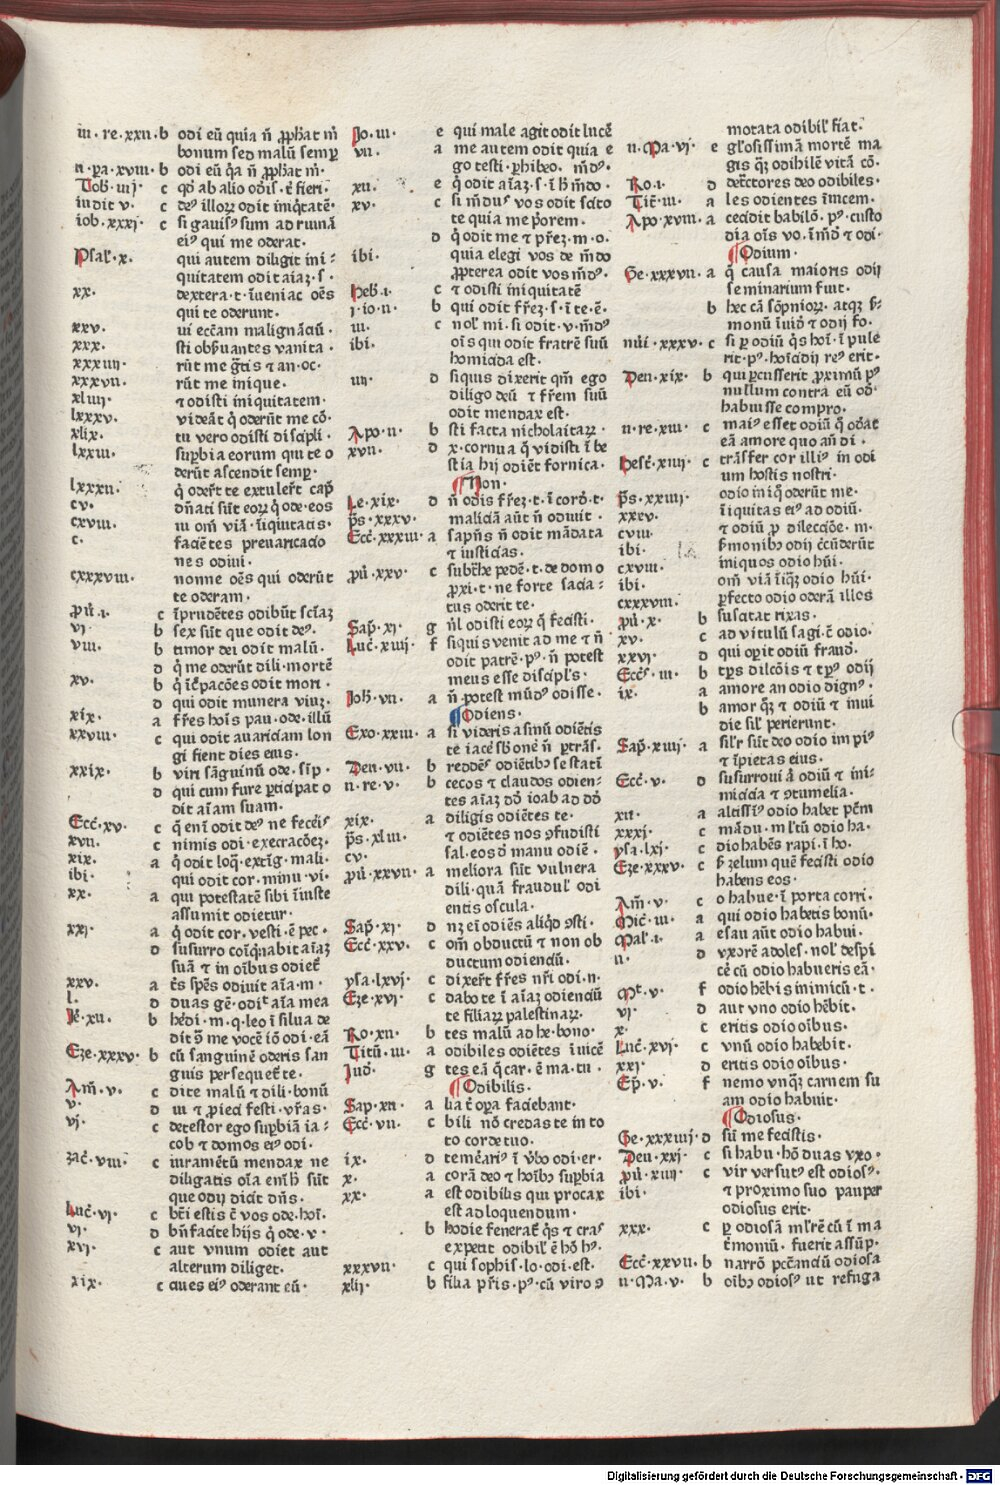 iii · re · xxii · b odi eū quia n̄ ꝓph̄at m̄
bonum sed malū semꝑ
ii · pa · xviii · b odi eū q̄a n̄ ꝓph̄at m̄ ·
iudit v · c illoꝝ odit iniq̄tatē ·
iob · xxxj · c si gauisꝰ sum ad ruinā
eiꝰ qui me oderat ·
Psal̄ · x · qui autem diligit ini-
quitatem odit aīaz · s ·
xx · dextera · t · īueniac oēs
qui te oderunt ·
xxv · ui
xxx · sti obẜuantes vanita ·
xxxiiii · rūt me
xxxvii · rūt me inique ·
xliiij · ⁊ odisti iniquitatem ·
lxxxv · videāt q̄ oderūt me cō ·
xlix · tu vero odisti discipli ·
lxxiii · suꝑbia eorum qui te o
derūt ascendit semꝑ ·
lxxxii · q̄ oder̄t te extuler̄t cap̄
cv · dn̄ati sūt eoꝝ q̄ ode · eos
cxviii · iu om̄ viā · īiquitatis ·
c · faciētes preuaricatio
nes odiui ·
cxxxviii · nonne oēs qui oderūt
te oderam ·
ꝓū · i · c īprudētes odibūt scīaz
vj · b sex sūt que odit deꝰ ·
viii · b timor dei odit malū ·
d q̄ me oderūt dili · mortē
xv · b odit mori ·
d qui odit munera viuz ·
xix · a fr̄es hoīs pau · ode · illū
xxviii · c qui odit auaritiam lon
gi fient dies eius ·
xxix · b viri sāguinū ode · sīp ·
d qui cum fure ꝑticipat o
dit aīam suam ·
Ecc̄ · xv · c
xvii · c nimis odi · execracōez ·
xix · a q̄ odit loq̄ · extīg · mali ·
ibi · qui odit cor · minu · vi ·
xx · a qui potestatē sibi īiuste
assumit odietur ·
xxj · a q̄ odit cor · vesti · ē pec ·
d susurro coīq̄nabit aīaz
suā ⁊ in oībus odiet̄
xxv · a odiuit aīa m ·
l · d duas gē · odit aīa mea
Je᷑ · xii · b hēdi · m · q · leo ī silua de
me vocē iō odi · eā
Eze · xxxv · b cū sanguinē oderis san
guis persequet̄ te ·
Am̄ · v · c dite malū ⁊ dili · bonū
v · d iu ⁊ ꝓieci festi · vr̄as ·
vj · c detestor ego suꝑbiā ia-
cob ⁊ domos eiꝰ odi ·
zac̄ · viii · c iuramētū mendax ne
diligatis oīa sūt
que odij dicit dn̄s ·
Luc̄ · vj · c bt̄i estis c̄ vos ode · hoī ·
vj · d bn̄ facite hijs q̄ ode · v ·
xvj · c aut vnum odiet aut
alterum diliget ·
xix · c ciues eiꝰ oderant eū ·
Jo · iii · e qui male agit odit lucē
vii · a me autem odit quia e
go testi · ꝑhibeo · m̄dꝰ ·
xii · e q̄ odit aīaz · s ·
xv · c si m̄dus vos odit scito
te quia me pͥorem ·
d q̄ odit me ⁊ pr̄ez · m · o ·
ibi · quia elegi vos de m̄do
ꝓpterea odit vos m̄dꝰ ·
Heb̄ · i · c ⁊ odisti iniquitatē
j · io · ii · b qui odit fr̄ez · s · ī te · ē ·
iii · c nol̄ mi · si odit · v · m̄dꝰ
ibi · oīs qui odit fratrē suū
homicida est ·
iiij · d siquis dixerit qm̄ ego
diligo deū ⁊ fr̄em suū
odit mendax est ·
Apo · ii · b sti facta nicholaitaꝝ ·
xvii · d x · cornua q̄ vidisti ī be
stia hij odiēt fornica ·
¶Non ·
Le · xix · d n̄ odis fr̄ez · t · ī cord̄ · t ·
p̄s · xxxv · maliciā aūt n̄ odiuit ·
Ecc̄ · xxxiii · a sapn̄s n̄ odit mādata
⁊ iusticias ·
ꝓū · xxv · c pedē · t · de domo
ꝓxi · t · ne forte sacia-
tus oderit te ·
Sap̄ · xj · g odisti eoꝝ q̄ fecisti ·
Luc̄ · xiiij · f siquis venit ad me ⁊ n̄
odit patrē · pꝰ · n̄ potest
meus esse discip̄l̄s ·
Joh̄ · vii · a n̄ potest mūdꝰ odisse ·
¶Odiens ·
Exo · xxiii · a si videris asinū odiētis
te
Deu · vii · b reddēs odiētibꝫ se statī
ii · re · v · b cecos ⁊ claudos odien-
tes aīaz dd̄ ioab ad dd̄
xix · a diligis odiētes te ·
p̄s · xliii · ⁊ odiētes nos ꝯfudisti
cv · sal · eos d̄ manu odiē ·
ꝓū · xxvii · a meliora sūt vulnera
dili · quā fraudul̄ odi
entis oscula ·
Sap̄ · xj · d nz eī odiēs aliqd̄ ꝯsti ·
Ecc̄ · xxv · c om̄ obductū ⁊ non ob
ductum odienciū ·
ysa · lxvj · c dixer̄t fr̄es nr̄i odi · n ·
Eze · xvj · c dabo te ī aīaz odienciū
te filiaꝝ palestinaꝝ ·
Ro · xii · b tes malū adhe · bono ·
Titū · iii · a odibiles odiētes īuicē
Jud̄ · g tes eā q̄ car · ē ma · tu ·
¶Odibilis ·
Sap · xii · a lia t̄ oꝑa faciebant ·
Ecc̄ · vii · c bili nō credas te in to
to corde tuo ·
ix · d temēariꝰ ī v̄bo odi · er ·
x · a corā deo ⁊ hoībꝫ suꝑbia
xx · a est odibilis qui procax
est ad loquendum ·
b hodie fenerat̄ q̄s ⁊ cras
expetit odibil̄ ē hō hꝰ ·
xxxvii · c qui sophis · lo · odi · est ·
xlij · b filia pr̄is · pꝰ · cū viro ꝯ
motata odibil̄ fiat ·
ii · Ma · vj · e gl̄osissimā mortē ma
gis qz odibilē vitā cō ·
Ro · i · d det̄ctores deo odibiles ·
Tit̄ · iii · a les odientes īuicem ·
Apo · xviii · a cecidit babilō · pꝰ · custo
dia oīs vo · īm̄d̄ ⁊ odi ·
¶Odium ·
Ge · xxxvii · a q̄ causa maioris odij
seminarium fuit ·
b hec cā sōpnioꝝ · atqꝫ ẜ-
monū īuid̄ ⁊ odij fo ·
nūi · xxxv · c si ꝑ odiū q̄s hoī · ī pule
rit · pꝰ · hoīcidij reꝰ erit ·
Deu · xix · b qui ꝑcusserit ꝓximū pꝰ
nullum contra eū od̄
habuisse compro ·
ii · re · xiii · c maiꝰ esset odiū q̄ od̄at
eā amore quo an̄ di ·
hest̄ · xiiij · c trāsfer cor illiꝰ in odi
um hostis nostri ·
p̄s · xxiiij · odio iniq̄ oderūt me ·
xxxv · īiquitas eiꝰ ad odiū ·
cviii · ⁊ odiū ꝓ dilecc̄ōe · m ·
ibi · ẜmonibꝫ odij
cxviii · iniquos odio hūi ·
ibi · om̄ viā īiq̄z odio hūi ·
cxxxviii · ꝑfecto odio oderā illos
ꝓū · x · b suscitat rixas ·
xv · c ad vitulū sagi · c̄ odio ·
xxvj · d qui oꝑit odiū fraud̄ ·
Ecc̄s · iii · b tꝑs dilc̄ōis ⁊ tꝑs odij
ix · a amore an odio dignꝰ ·
b amor qz ⁊ odiū ⁊ inui
die sil̄ perierunt ·
Sap̄ · xiiij · a sil̄r sūt deo odio impiꝰ
⁊ īpietas eius ·
Ecc̄ · v · d susurroni odiū ⁊ ini-
micicia ⁊ ꝯtumelia ·
xii · a altissīꝰ odio habet pc̄m
xxxj · c mādu · ml̄tū odio ha ·
ysa · lxj · c dio habēs rapi · ī ho ·
Eze · xxxv · c zelum quē fecisti odio
habens eos ·
Am̄ · v · c o habue · ī porta corri ·
Mic̄ · iii · a qui odio habetis bonū ·
Mal̄ · i · a esau aūt odio habui ·
ii · d vxorē adoles · nol̄ despi
cē cū odio habueris eā ·
Mt̄ · v · f odio hēbis inimicū · t ·
vj · d aut vno odio hēbit ·
x · c eritis odio oībus ·
Luc̄ · xvj · c vnū odio habebit ·
xxj · d eritis odio oībus ·
Ep̄ · v · f nemo vnqz carnem su
am odio habuit ·
¶Odiosus ·
Ge · xxxiiij · d sū me fecistis ·
Deu · xxj · c si habu · hō duas vxo ·
ꝓū · xiiij · c vir versutꝰ est odiosꝰ ·
ibi · ⁊ proximo suo pauper
odiosus erit ·
xxx · c ꝑ odiosā ml̄rē cū ī ma
t̄moniū · fuerit assūp ·
Ecc̄ · xxvii · b narrō pc̄canciū odiosa
ii · Ma · v · b oībꝫ odiosꝰ ut refuga
Digitalisierung gefördert durch die Deutsche Forschungsgemeinschaft - DFG